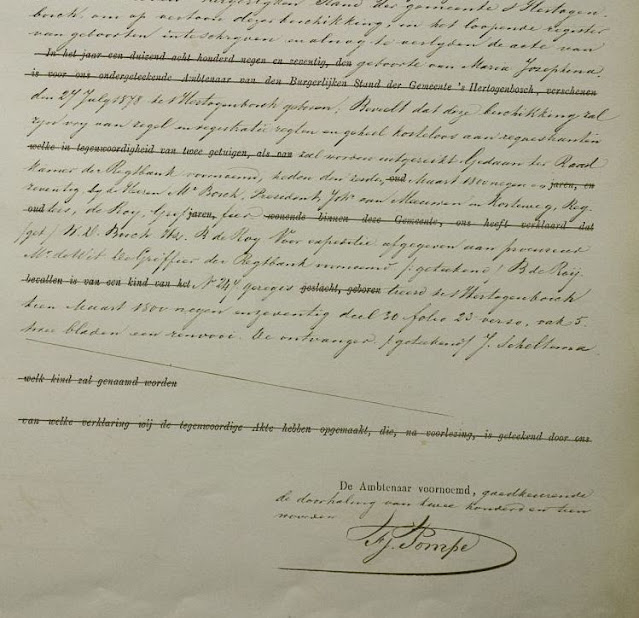 den Burgerlijken Stand der gemeente 's Hertogen-
bosch, om op vertoon dezer beschikking, in het loopende register
van geboorten inteschrijven en alnog te verlyden de acte van
In het jaar een duizend acht honderd negen en zeventig, den geboorte van Maria Josephina,
is voor ons ondergeteekende Ambtenaar van den Burgerlijken Stand der Gemeente 's Hertogenbosch, verschenen
den 27 July 1878 te 's Hertogenbosch geboren. Beveelt dat deze beschikking zal
zyn vry van zegel en registratie regten en geheel kosteloos aan requestranten
welke in tegenwoordigheid van twee getuigen, als van zal worden uitgereikt. Gedaan ter Raad
kamer der Regtbank voornoemd, heden den zesden oud Maart 1800 negen en jaren, en
zeventig by de Heeren Mr Bosch, President, van Meeuwen en Reg-
oud ters, de Roy, Grif jaren, fier wonende binnen deze Gemeente, ons heeft verklaard dat
(get) W. D. Bosch B de Roy Voor expeditie afgegeven aan procureur
Mr de Wit De Griffier der Regtbank voornoemd (geteekend) B de Roy.
bevallen is van een kind van het No 244 geregis geslacht, geboren treerd te 's Hertogenbosch
tien Maart 1800 negen en zeventig deel 30 folio 23 verso, vak 5.
twee bladen een renvooi. De ontvanger (geteekend) J. Scheltema
welk kind zal genaamd worden
van welke verklaring wij de tegenwoordige Akte hebben opgemaakt, die, na voorlezing, is geteekend door ons
De Ambtenaar voornoemd, goedkeurende
de doorhaling van twee honderd en tien
woorden
Pompe